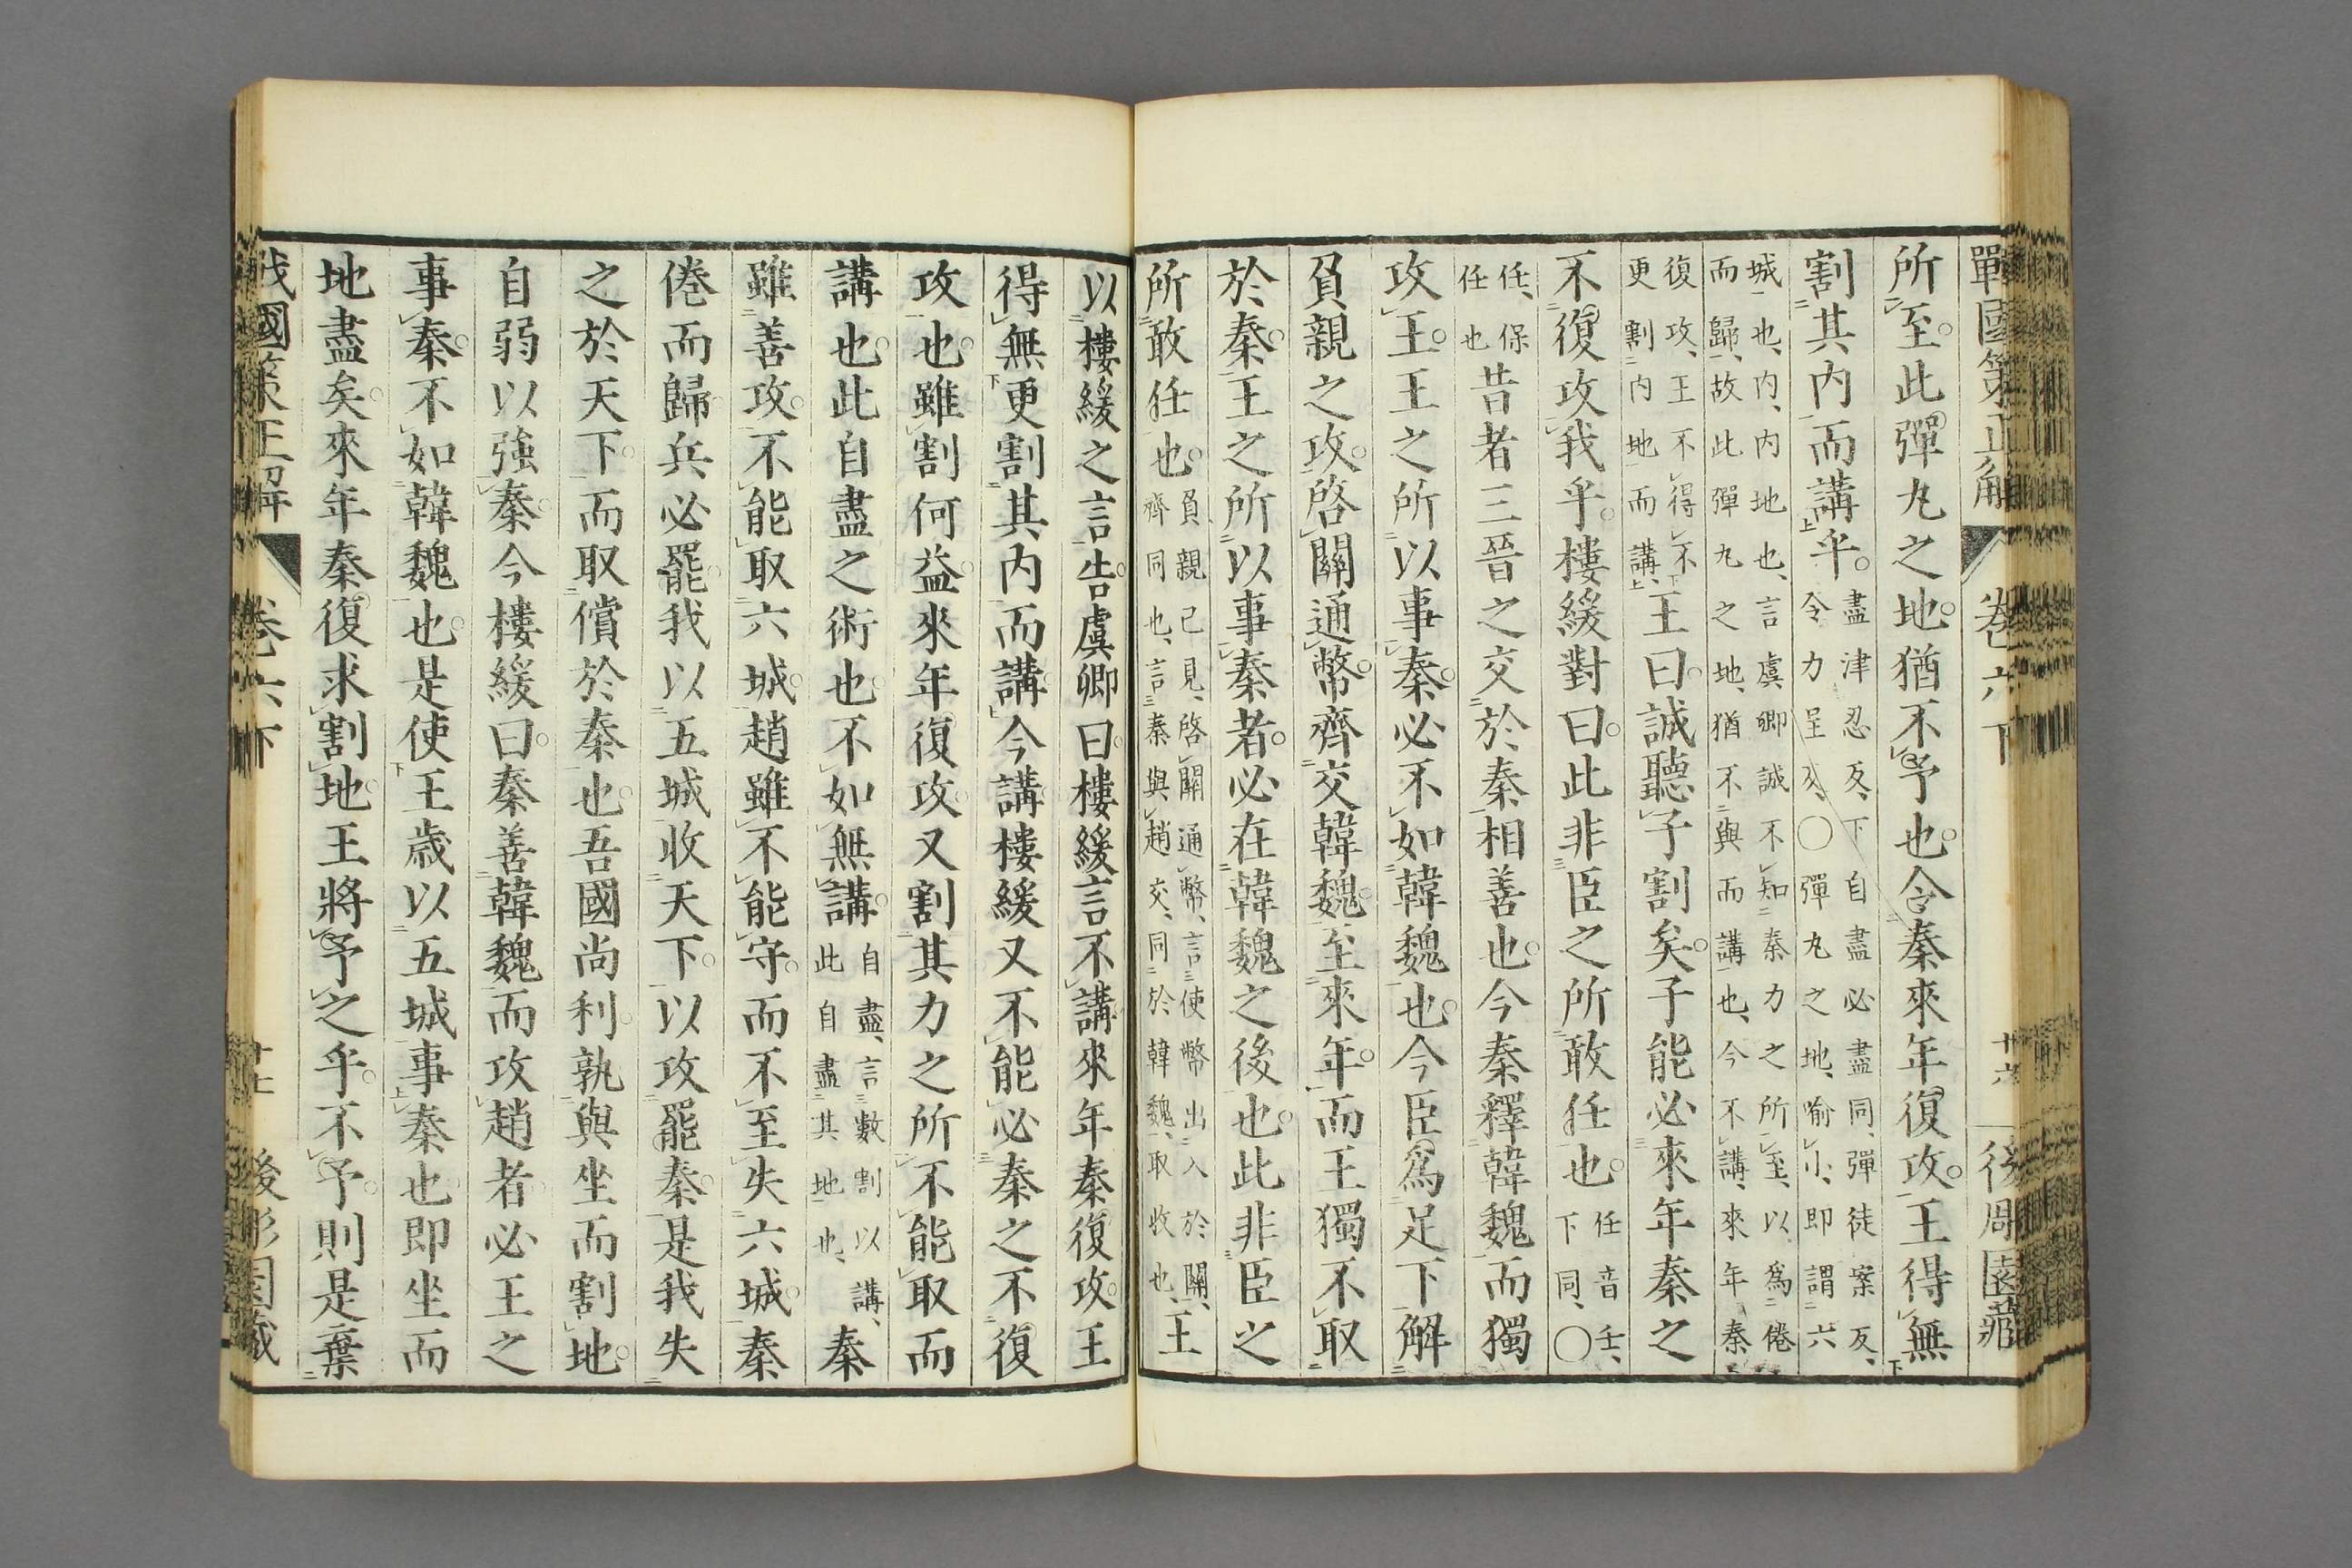 戰國策正解 卷六下 廿六 後凋園藏
所至此彈丸之地猶不予也令秦來年復攻王得無
割其內而講乎盡津忍反下自盡必盡同彈徒案反令力呈反〇彈丸之地喻小即謂六
城也內內地也言虞卿誠不知秦力之所至以爲倦而歸故此彈丸之地猶不與而講也今不講來年秦
復攻王不得不更割內地而講王曰誠聽子割矣子能必來年秦之
不復攻我乎樓緩對曰此非臣之所敢任也任音壬下同〇
任保任也昔者三晉之交於秦相善也今秦釋韓魏而獨
攻王王之所以事秦必不如韓魏也今臣爲足下解
負親之攻啓關通幣齊交韓魏至來年而王獨不取
於秦王之所以事秦者必在韓魏之後也此非臣之
所敢任也負親已見啓關通幣言使幣出入於關齊同也言秦與趙交同於韓魏取收也王
以樓緩之言告虞卿曰樓緩言不講來年秦復攻王
得無更割其內而講今講樓緩又不能必秦之不復
攻也雖割何益來年復攻又割其力之所不能取而
講也此自盡之術也不如無講自盡言數割以講此自盡其地也秦
雖善攻不能取六城趙雖不能守而不至失六城秦
倦而歸兵必罷我以五城收天下以攻罷秦是我失
之於天下而取償於秦也吾國尚利孰與坐而割地
自弱以強秦今樓緩曰秦善韓魏而攻趙者必王之
事秦不如韓魏也是使王歲以五城事秦也即坐而
地盡矣來年秦復求割地王將予之乎不予則是棄
戰國策正解 卷六下 廿七 後彫園藏